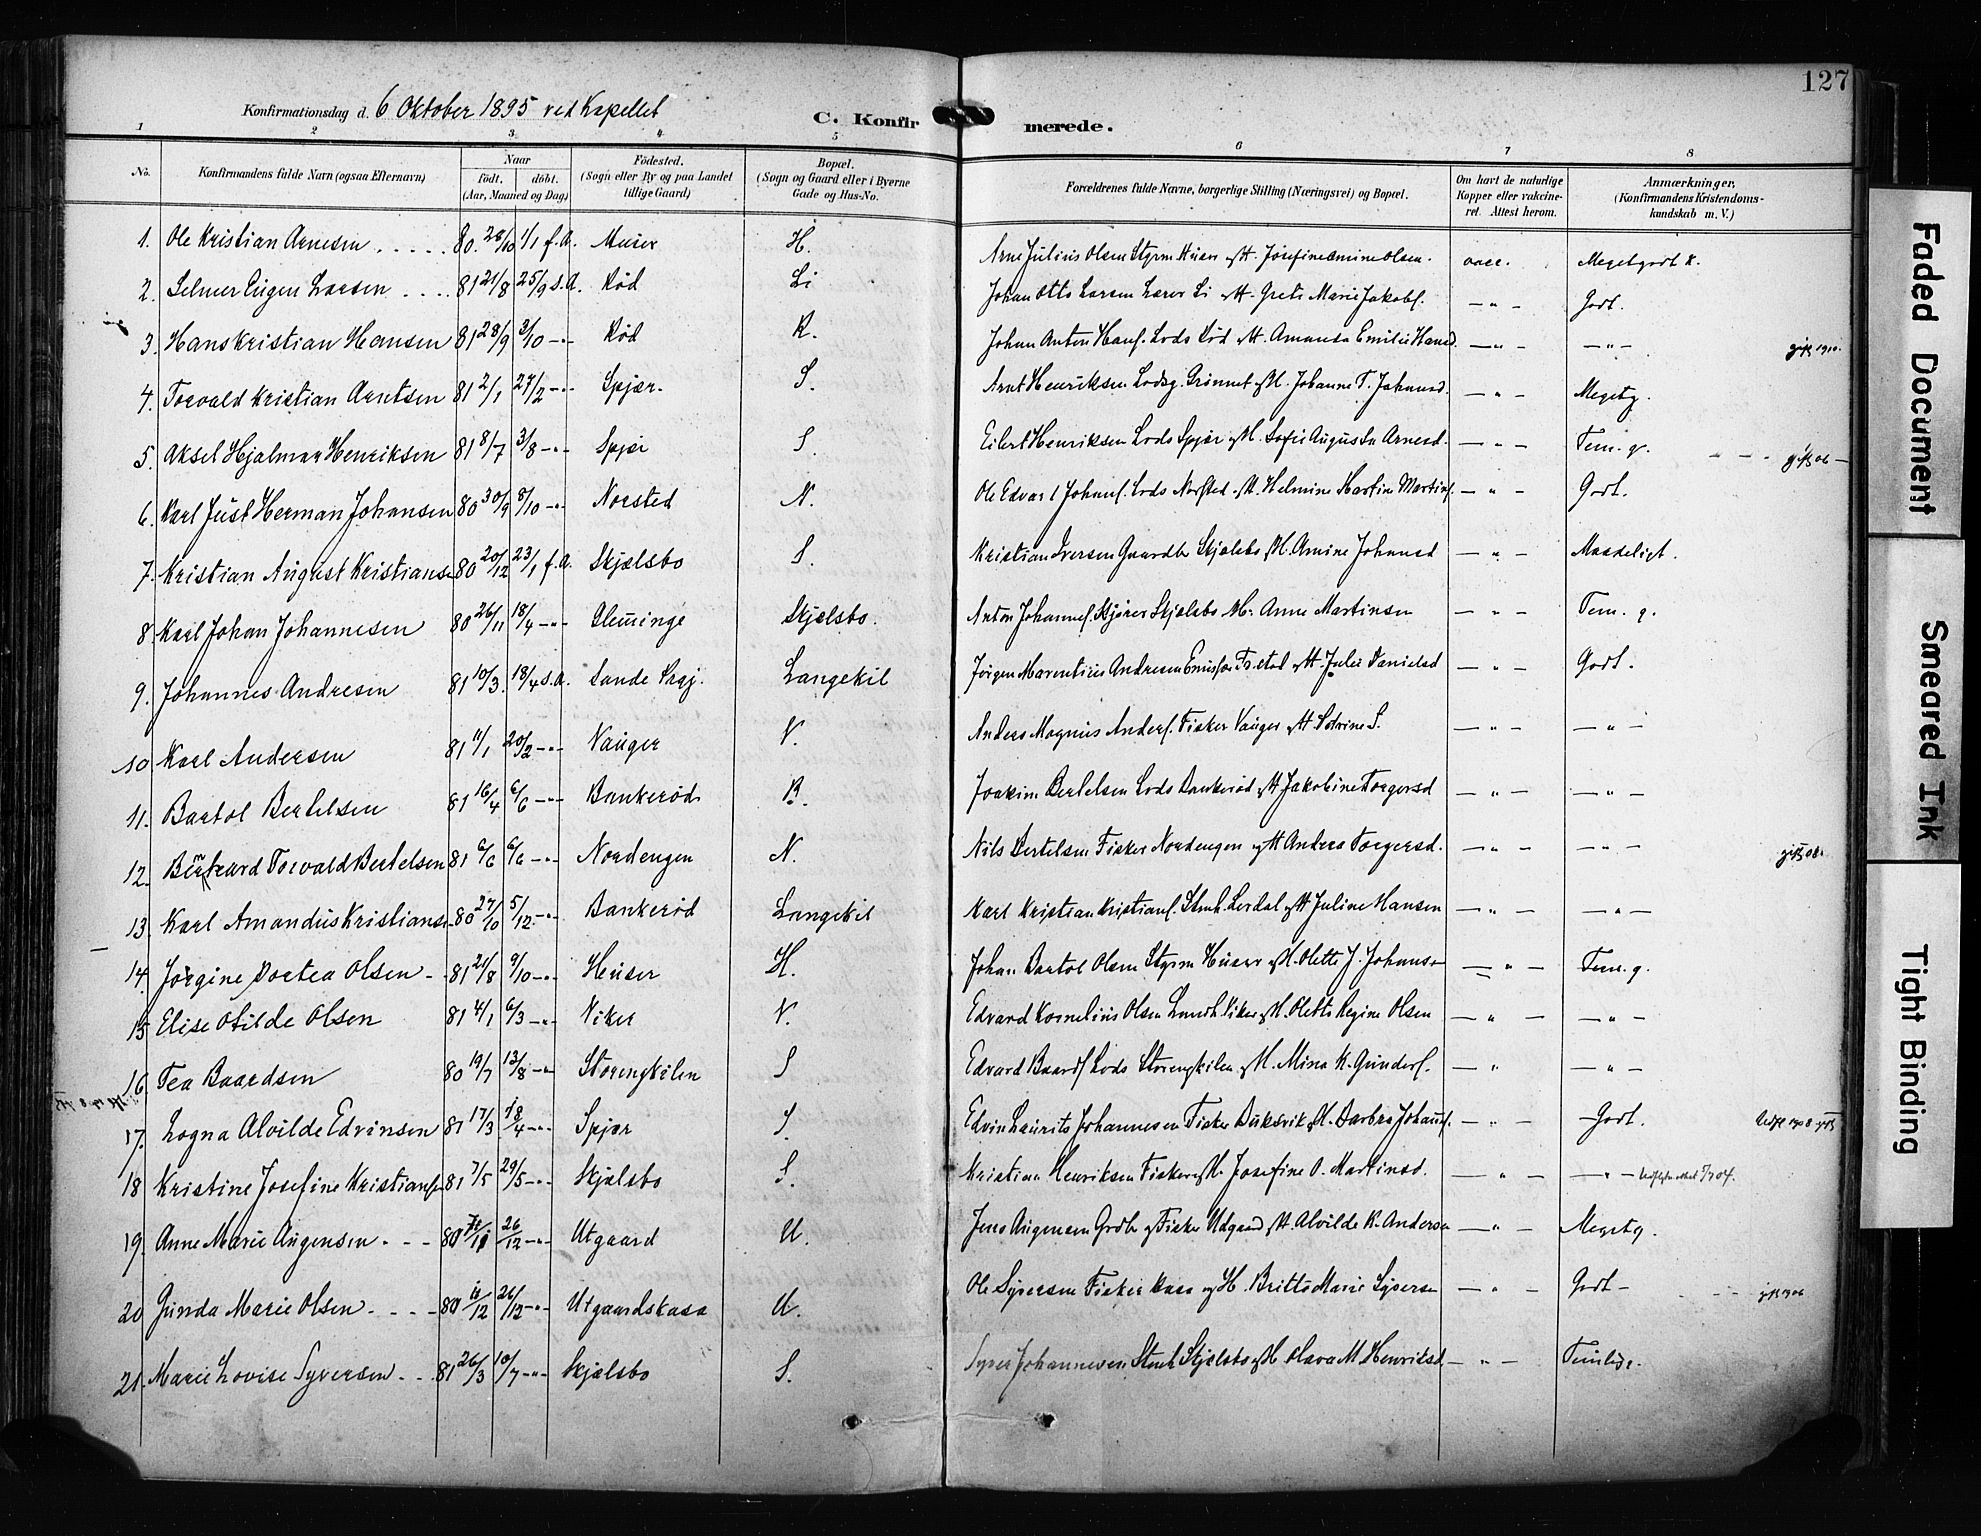 127
Konfirmationsdag d. 6 Oktober 1895 ved Kapellet
C. Konfirmerede.
1 2 3 4 5 6 7 8
No. Konfirmandens fulde Navn (ogsaa Efternavn) Naar födt. döbt. (Aar, Maaned og Dag) Födested. (Sogn eller By og paa Landet tillige Gaard) Bopæl. (Sogn og Gaard eller i Byerne Gade og Hus-No. Forældrenes fulde Navne, borgerlige Stilling (Næringsvei) og Bopæl. Om havt de naturlige Kopper eller vakcineret. Attest herom. Anmærkninger, (Konfirmandens Kristendomskundskab m. V.)
1. Ole Kristian Arnesen 80 28/10 1/1 f.a. Huser H. Arne Julius Olsen Styrm Huser & H. Josefine Olsen. vacc. Megetgodt k.
2. Selmer Eugen Larsen 81 21/8 25/9 s.a. Rød Li Johan Otto Larsen Lærer Li & H. Grete Marie Jakobs. — " — Godt.
3. Hans Kristian Hansen 81 28/9 3/10 -"- Rød R. Johan Anton Hans. Lods Rød & H. Amanda Emilie Hansd. — " — — " — gift 1910.
4. Torvald Kristian Arntsen 81 2/1 27/2 -"- Spjær. S. Arnt Henriksen Lodsg. Grönnet & H. Johanne T. Johansd. — " — Megetg.
5. Aksel Hjalmar Henriksen 81 8/7 3/8 -"- Spjær S. Eilert Henriksen Lods Spjær & H. Sofie Augusta Arnesd. — " — Tem. g. gift 06
6. Karl Just Herman Johansen 80 30/9 8/10 -"- Norsted N. Ole Edvard Johans. Lods Norsted & H. Helmine Martine Martins. — " — Godt.
7. Kristian August Kristianse 80 20/12 23/1 f.a. Skjælsbo S. Kristian Iversen Gaardbr Skjælsbo & H. Amine Johansd — " — Maadeligt.
8 Karl Johan Johannesen 80 26/11 18/4 -"- Glemminge Skjælsbo. Anton Johannes. Skjælsbo & H. Anne Martinsen — " — Tem. g.
9. Johannes Andresen 81 10/3. 18/4 s.a. Sande Langekil Jörgen Marentius Andresen & H. Julie Danielsd — " — Godt.
10 Karl Andersen 81 11/1 20/2 -"- Vauger V. Anders Magnus Anders. Fisker Vauger & H. S. — " — — " —
11. Bartol Bertelsen 81 16/4 6/6 -"- Bankerød B. Joakim Bertelsen Lods Bankerød & H Jakobine Torgersd — " — — " —
12. Bernhard Torvald Bertelsen 81 6/6 6/6 -"- Nordengen N. Nils Bertelsen Fisker Nordengen & H Andrea Torgersd. — " — — " — gift 08.
13. Karl Amandus Kristianse 80 27/10 5/12 -"- Bankerød Langekil Karl Kristian Kristians. Stmh. Lerdal & H Juline Hansen — " — — " —
14. Jörgine Dortea Olsen 81 21/8 9/10 -"- Huser H. Johan Bartol Olsen Styrm Huser & H. Olette J. Johanse — " — Tem. g.
15 Elise Otilde Olsen 81 4/1 6/3 -"- Viker V. Edvard Kornelius Olsen Landh. Viker & H. Olette Regine Olsen — " — — " —
16. Tea Baardsen 80 19/7 13/8 -"- Storengkilen S Edvard Baards Lods Storengkilen & H. Mina K. Gunders. — " — " —
17. Logna Alvilde Edvinsen 81 17/3 18/4 -"- Spjær S. Edvin Laurits Johannesen Fisker Buksvik & H. Barbra Johans. — " — Godt.
18 Kristine Josefine Kristianse 81 7/5 29/5 -"- Skjælsbo S. Kristian Henriksen Fisker & H. Josefine O. Martinsd. — " — — " — 5/7 04.
19. Anne Marie Augensen 80 26/12 -"- Utgaard U. Jens Augensen Grdbr & Fisker Udgaard & H Alvilde K. Anderse — " — Megetg
20 Gunda Marie Olsen 80 26/12 -"- Utgaardskasa U. Ole Syversen Fisker Kasa & H. Britte Marie Syversen — " — Godt gift 1906
21. Marie Lovise Syversen 81 26/3 10/7 -"- Skjælsbo S. Syver Johannesen Stenh Skjælsbo & H Olava M Henriksd — " — Temlige.
Faded Document
Smeared Ink
Tight Binding